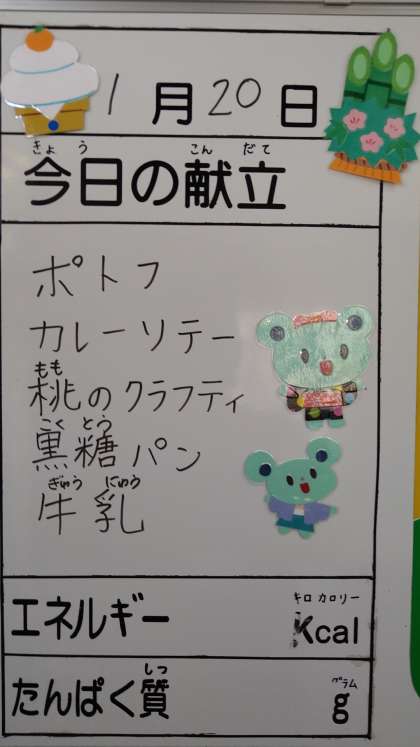 1月20日
きょう こんだて
今日の献立
ポトフ
カレーソテー
もも
桃のクラフティ
こくとう
黒糖パン
ぎゅうにゅう
牛乳
キロカロリー
エネルギー Kcal
しつ グラム
たんぱく質 g